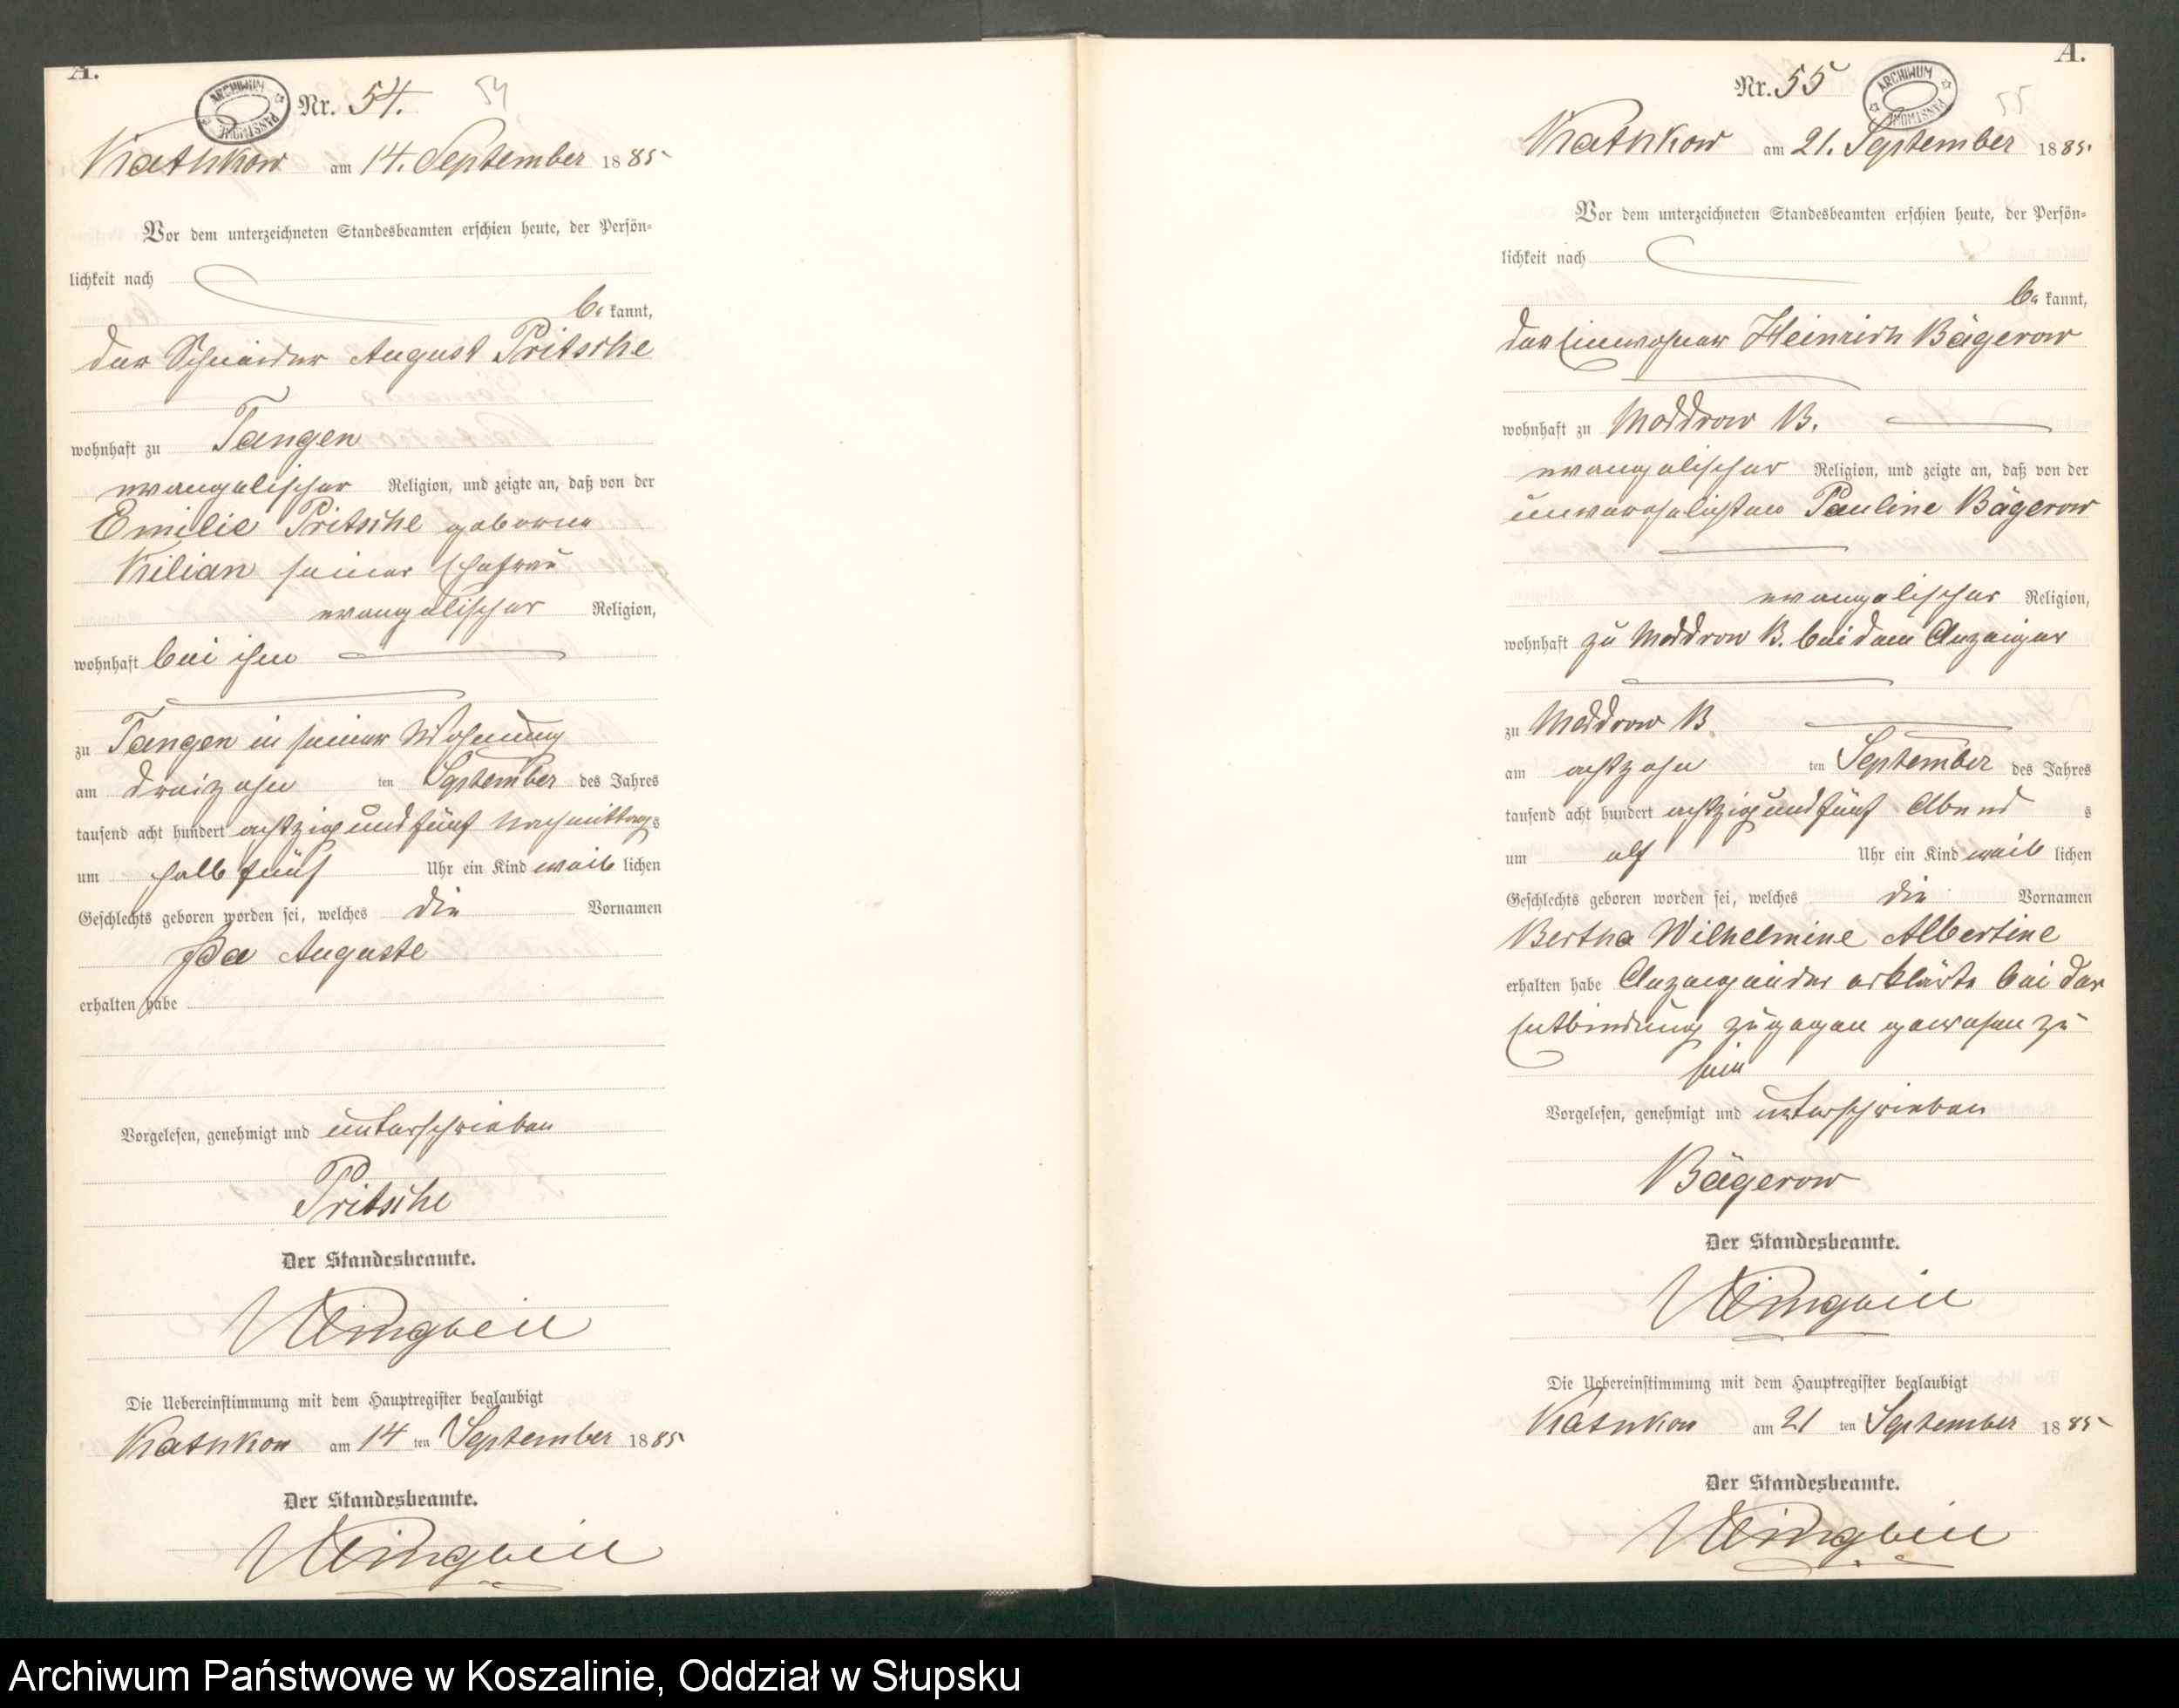 A.
ARCHIWUM PAŃSTWOWE
Nr. 54. 54
Kathkow am 14. September 1885
Vor dem unterzeichneten Standesbeamten erschien heute, der Persön-
lichkeit nach
be kannt,
der Schneider August Pritsche
wohnhaft zu Tangen
evangelischer Religion, und zeigte an, daß von der
Emilie Pritsche geborne
Kilian seiner Ehefrau
evangelischer Religion,
wohnhaft bei ihm
zu Tangen in seiner Wohnung
am dreizehn ten September des Jahres
tausend acht hundert achtzig und fünf Nachmittags
um halb fünf Uhr ein Kind weib lichen
Geschlechts geboren worden sei, welches die Vornamen
Ida Auguste
erhalten habe
Vorgelesen, genehmigt und unterschrieben
Pritsche
Der Standesbeamte.
Die Uebereinstimmung mit dem Hauptregister beglaubigt
Kathkow am 14 ten September 1885
Der Standesbeamte.
A.
Nr. 55 55
ARCHIWUM PAŃSTWOWE
Kathkow am 21. September 1885.
Vor dem unterzeichneten Standesbeamten erschien heute, der Persön-
lichkeit nach
be kannt,
der Einwohner Heinrich Bägerow
wohnhaft zu Moddrow B.
evangelischer Religion, und zeigte an, daß von der
unverehelichten Pauline Bägerow
evangelischer Religion,
wohnhaft zu Moddrow B. bei dem Anzeiger
zu Moddrow B.
am achtzehn ten September des Jahres
tausend acht hundert achtzig und fünf Abend s
um elf Uhr ein Kind weib lichen
Geschlechts geboren worden sei, welches die Vornamen
Bertha Wilhelmine Albertine
erhalten habe Anzeigender erklärte bei der
Entbindung zugegen gewesen zu
sein
Vorgelesen, genehmigt und unterschrieben
Bägerow
Der Standesbeamte.
Die Uebereinstimmung mit dem Hauptregister beglaubigt
Kathkow am 21 ten September 1885
Der Standesbeamte.
Archiwum Państwowe w Koszalinie, Oddział w Słupsku